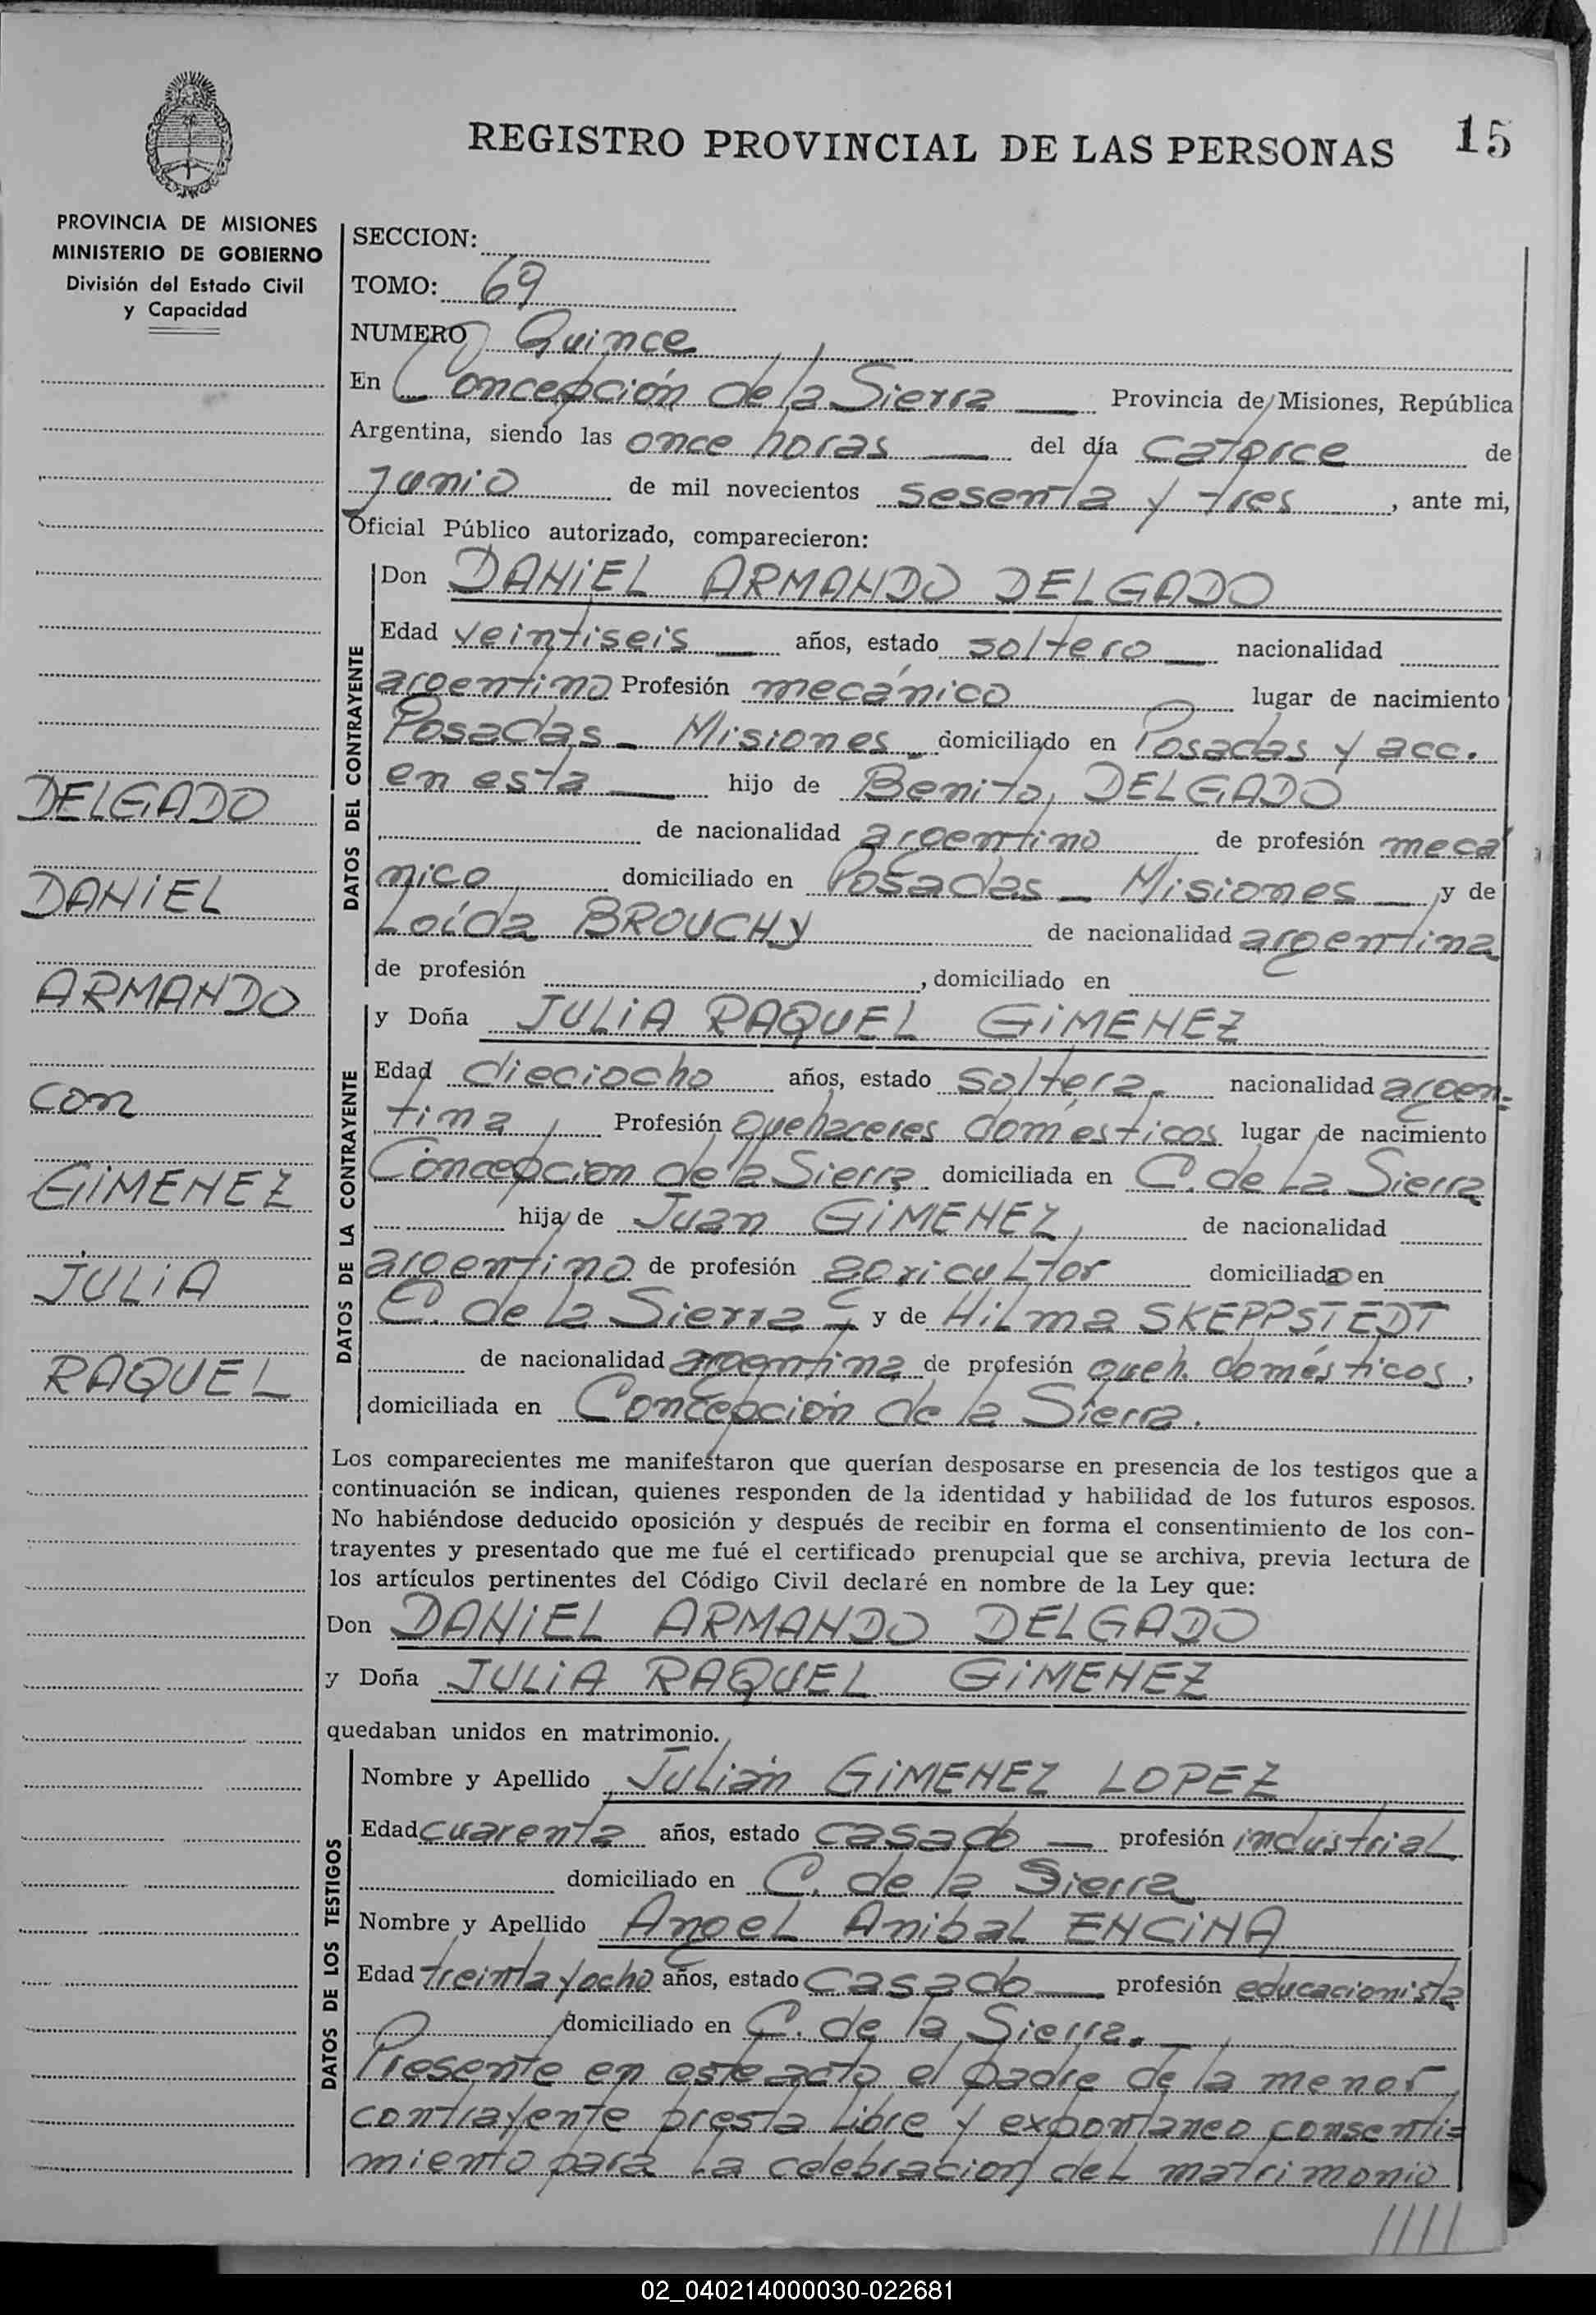 REGISTRO PROVINCIAL DE LAS PERSONAS 15
PROVINCIA DE MISIONES
MINISTERIO DE GOBIERNO
División del Estado Civil
y Capacidad
DELGADO
DANIEL
ARMANDO
con
GIMENEZ
JULIA
RAQUEL
SECCION:
TOMO: 69
NUMERO Quince
En Concepción de la Sierra Provincia de Misiones, República
Argentina, siendo las once horas del día catorce de
junio de mil novecientos sesenta y tres, ante mi,
Oficial Público autorizado, comparecieron:
DATOS DEL CONTRAYENTE
Don DANIEL ARMANDO DELGADO
Edad veintiseis años, estado soltero nacionalidad
argentino Profesión mecánico lugar de nacimiento
Posadas - Misiones domiciliado en Posadas y acc.
en esta hijo de Benito DELGADO
de nacionalidad argentino de profesión mecá
nico domiciliado en Posadas - Misiones y de
Loída BROUCHY de nacionalidad argentina
de profesión , domiciliado en
DATOS DE LA CONTRAYENTE
y Doña JULIA RAQUEL GIMENEZ
Edad dieciocho años, estado soltera. nacionalidad argen=
tina Profesión quehaceres domésticos lugar de nacimiento
Concepcion de la Sierra domiciliada en C. de La Sierra
hija de Juan GIMENEZ, de nacionalidad
argentino de profesión agricultor domiciliado en
C. de la Sierra - y de Hilma SKEPPSTEDT
de nacionalidad argentina de profesión queh. domésticos,
domiciliada en Concepción de la Sierra.
Los comparecientes me manifestaron que querían desposarse en presencia de los testigos que a
continuación se indican, quienes responden de la identidad y habilidad de los futuros esposos.
No habiéndose deducido oposición y después de recibir en forma el consentimiento de los con-
trayentes y presentado que me fué el certificado prenupcial que se archiva, previa lectura de
los artículos pertinentes del Código Civil declaré en nombre de la Ley que:
Don DANIEL ARMANDO DELGADO
y Doña JULIA RAQUEL GIMENEZ
quedaban unidos en matrimonio.
DATOS DE LOS TESTIGOS
Nombre y Apellido Julián GIMENEZ LOPEZ
Edad cuarenta años, estado casado profesión industrial
domiciliado en C. de la Sierra
Nombre y Apellido Angel Anibal ENCINA
Edad treinta y ocho años, estado casado profesión educacionista
domiciliado en C. de la Sierra.
Presente en este acto el padre de la menor
contrayente presta libre y expontaneo consenti=
miento para la celebración del matrimonio
////
02_040214000030-022681